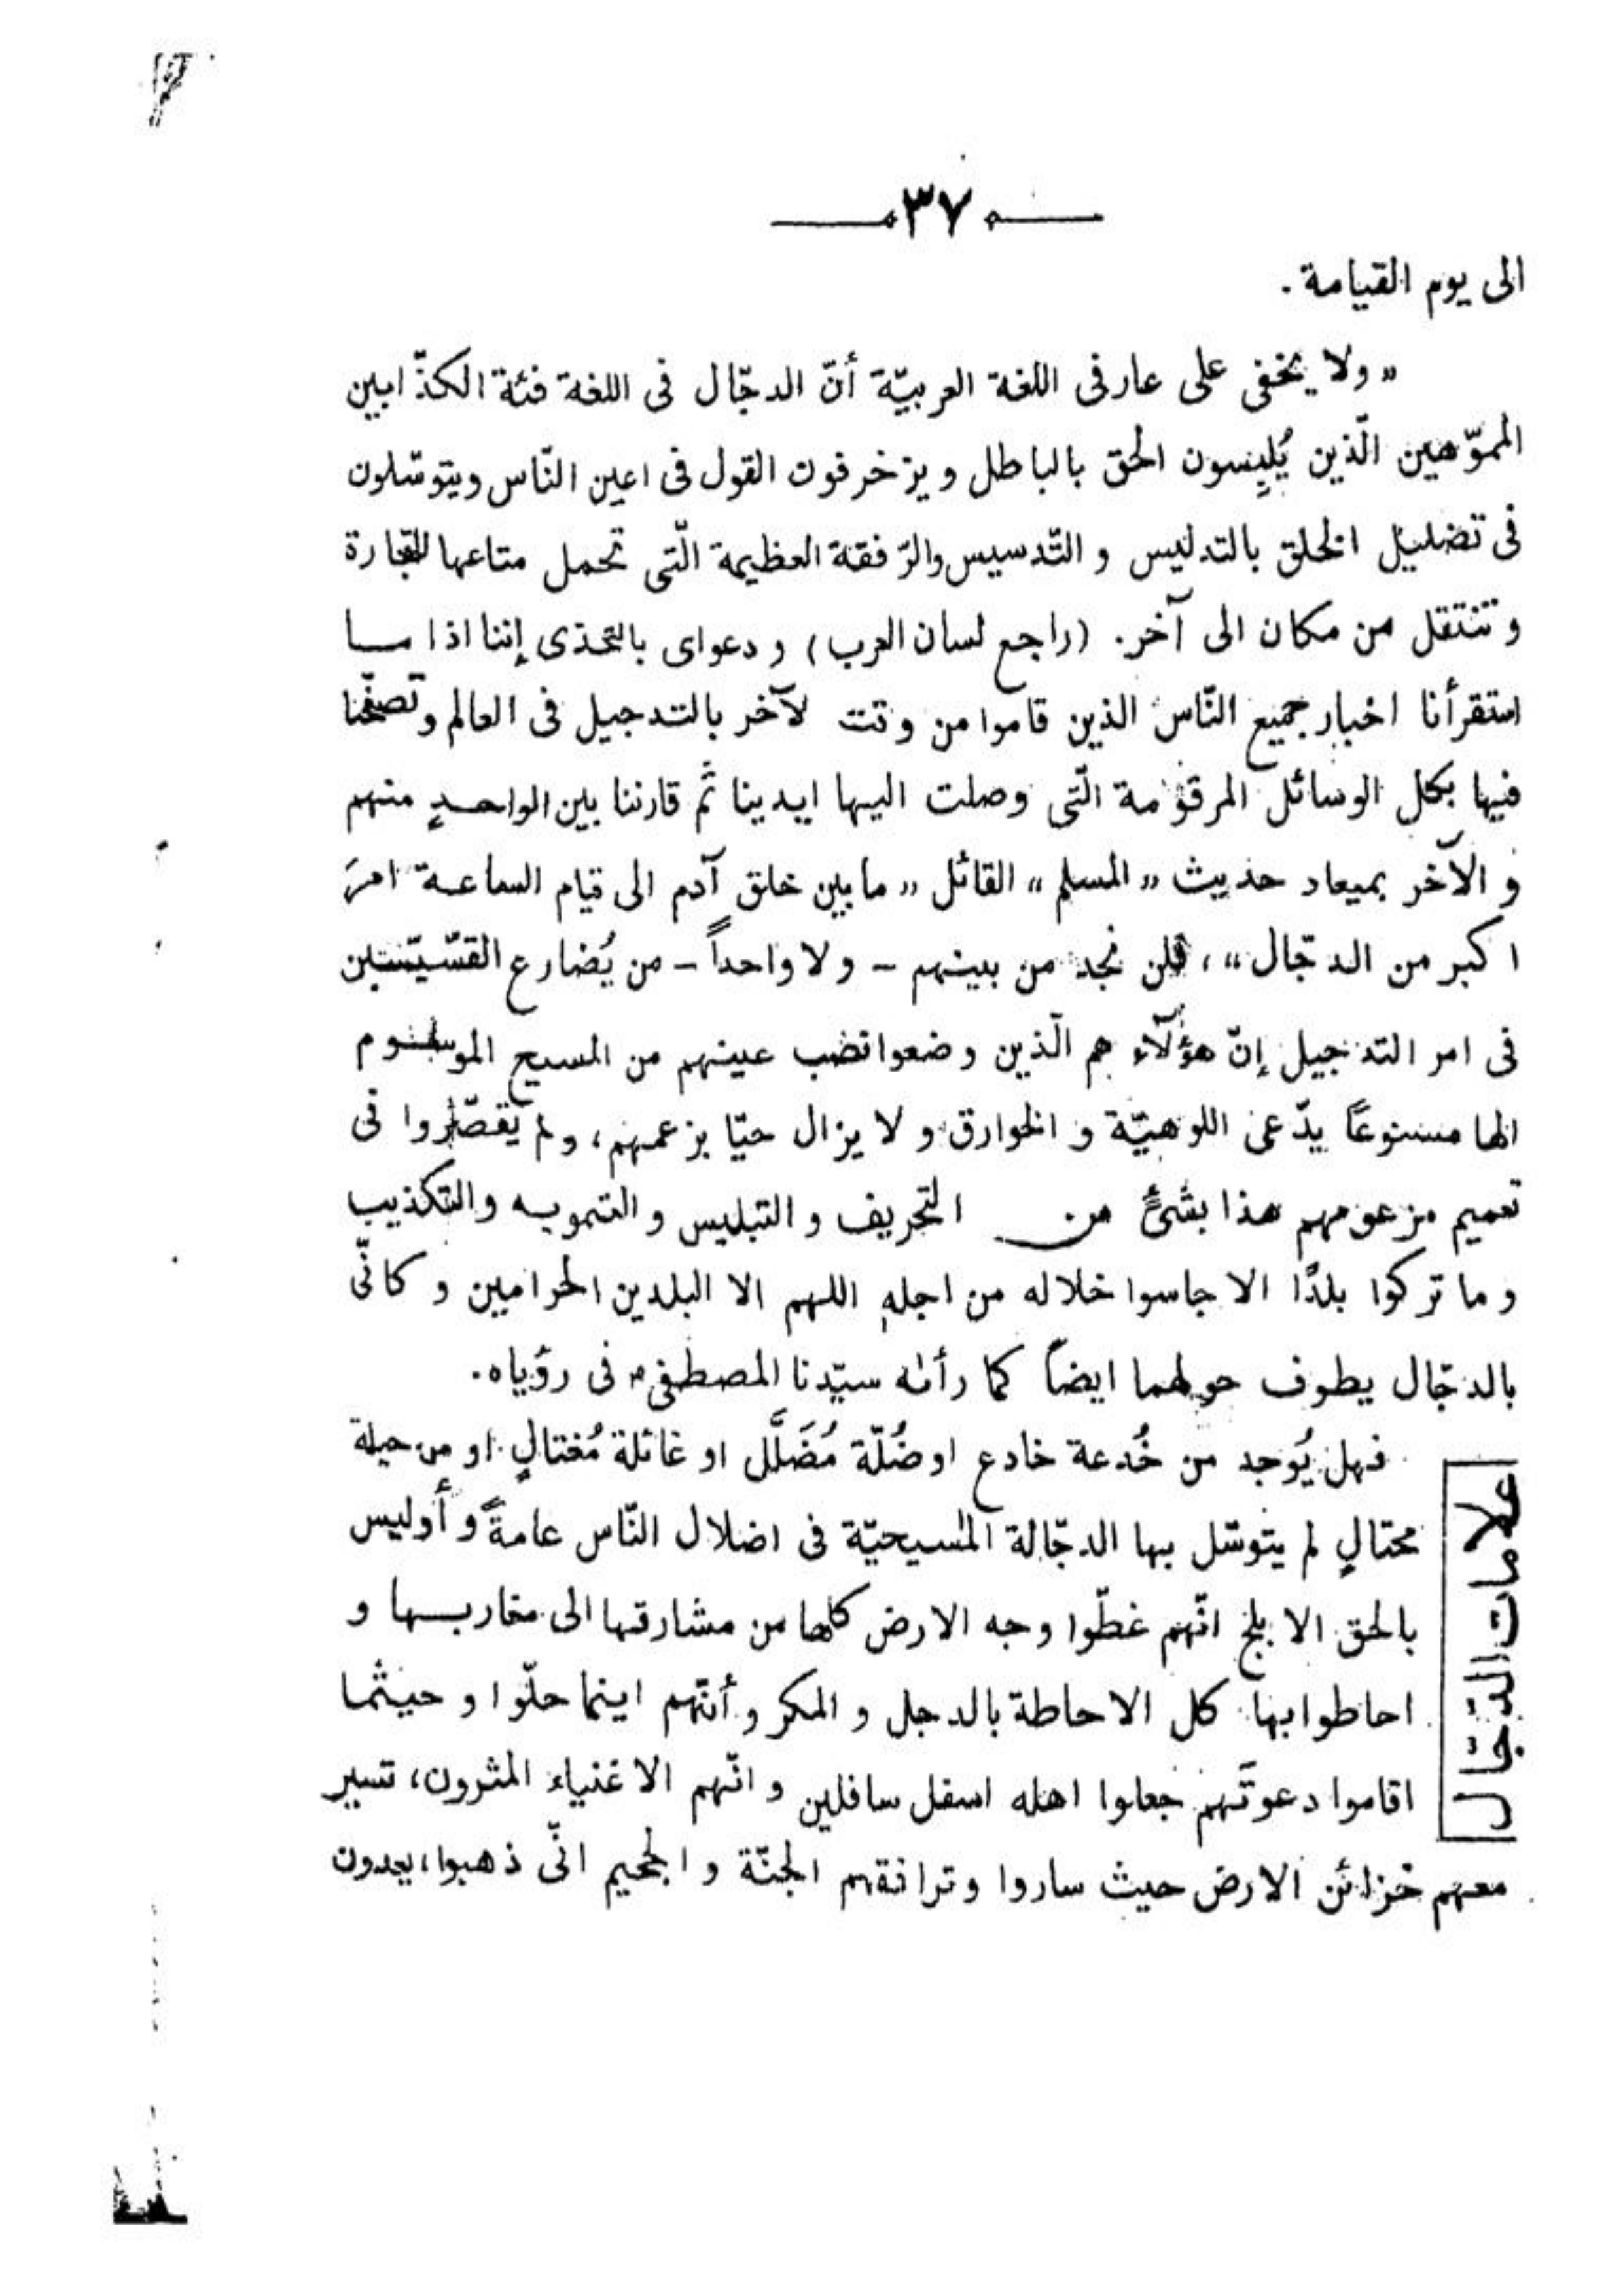 ٣٧
الى يوم القيامة.
« ولا يخفى على عارفى اللغة العربيّة أنّ الدجّال فى اللغة فئة الكذّابين
المموّهين الّذين يُلبِسون الحق بالباطل ويزخرفون القول فى اعين النّاس ويتوسّلون
فى تضليل الخلق بالتدليس و التّدسيس والرّفقة العظيمة الّتى تحمل متاعها للتّجارة
و تنتقل من مكان الى آخر. (راجع لسان العرب) و دعواى بالتحدى إننا اذا ما
استقرأنا اخبار جميع النّاس الذين قاموا من وقت لآخر بالتدجيل فى العالم وتصفّحنا
فيها بكل الوسائل المرقومة الّتى وصلت اليها ايدينا ثم قارننا بين الواحدٍ منهم
و الآخر بميعاد حديث « المسلم » القائل « مابين خلق آدم الى قيام الساعة امرٌ
اكبر من الدجّال »، فلن نجد من بينهم - ولا واحداً - من يُضارع القسّيسين
فى امر التدجيل إنّ هؤلآء هم الّذين وضعوا نصب عينهم من المسيح الموسوم
الها مسنوعًا يدّعى اللوهيّة و الخوارق و لا يزال حيّا بزعمهم، ولم يقصّروا فى
تعميم مزعومهم هذا بشئٍ من التحريف و التبليس و التمويه والتكذيب
و ما تركوا بلدًا الا جاسوا خلاله من اجلهِ اللهم الا البلدين الحرامين و كانّى
بالدجّال يطوف حولهما ايضاً كما رأه سيّدنا المصطفىٰ ؐ فى رؤياه.
علامات الدّجّال
فهل يُوجد من خُدعة خادع او ضُلّة مُضَلَّل او غائلة مُغتالٍ او من حيلة
محتالٍ لم يتوسّل بها الدجّالة المسيحيّة فى اضلال النّاس عامةً و أوليس
بالحق الابلج انّهم غطّوا وجه الارض كلها من مشارقها الى مغاربها و
احاطوا بها كل الاحاطة بالدجل و المكر و أنّهم اينما حلّوا و حيثما
اقاموا دعوتَهم جعلوا اهله اسفل سافلين و انّهم الاغنياء المثرون، تسير
معهم خزائن الارض حيث ساروا وترافقهم الجنّة و الجحيم انّى ذهبوا، يعدون